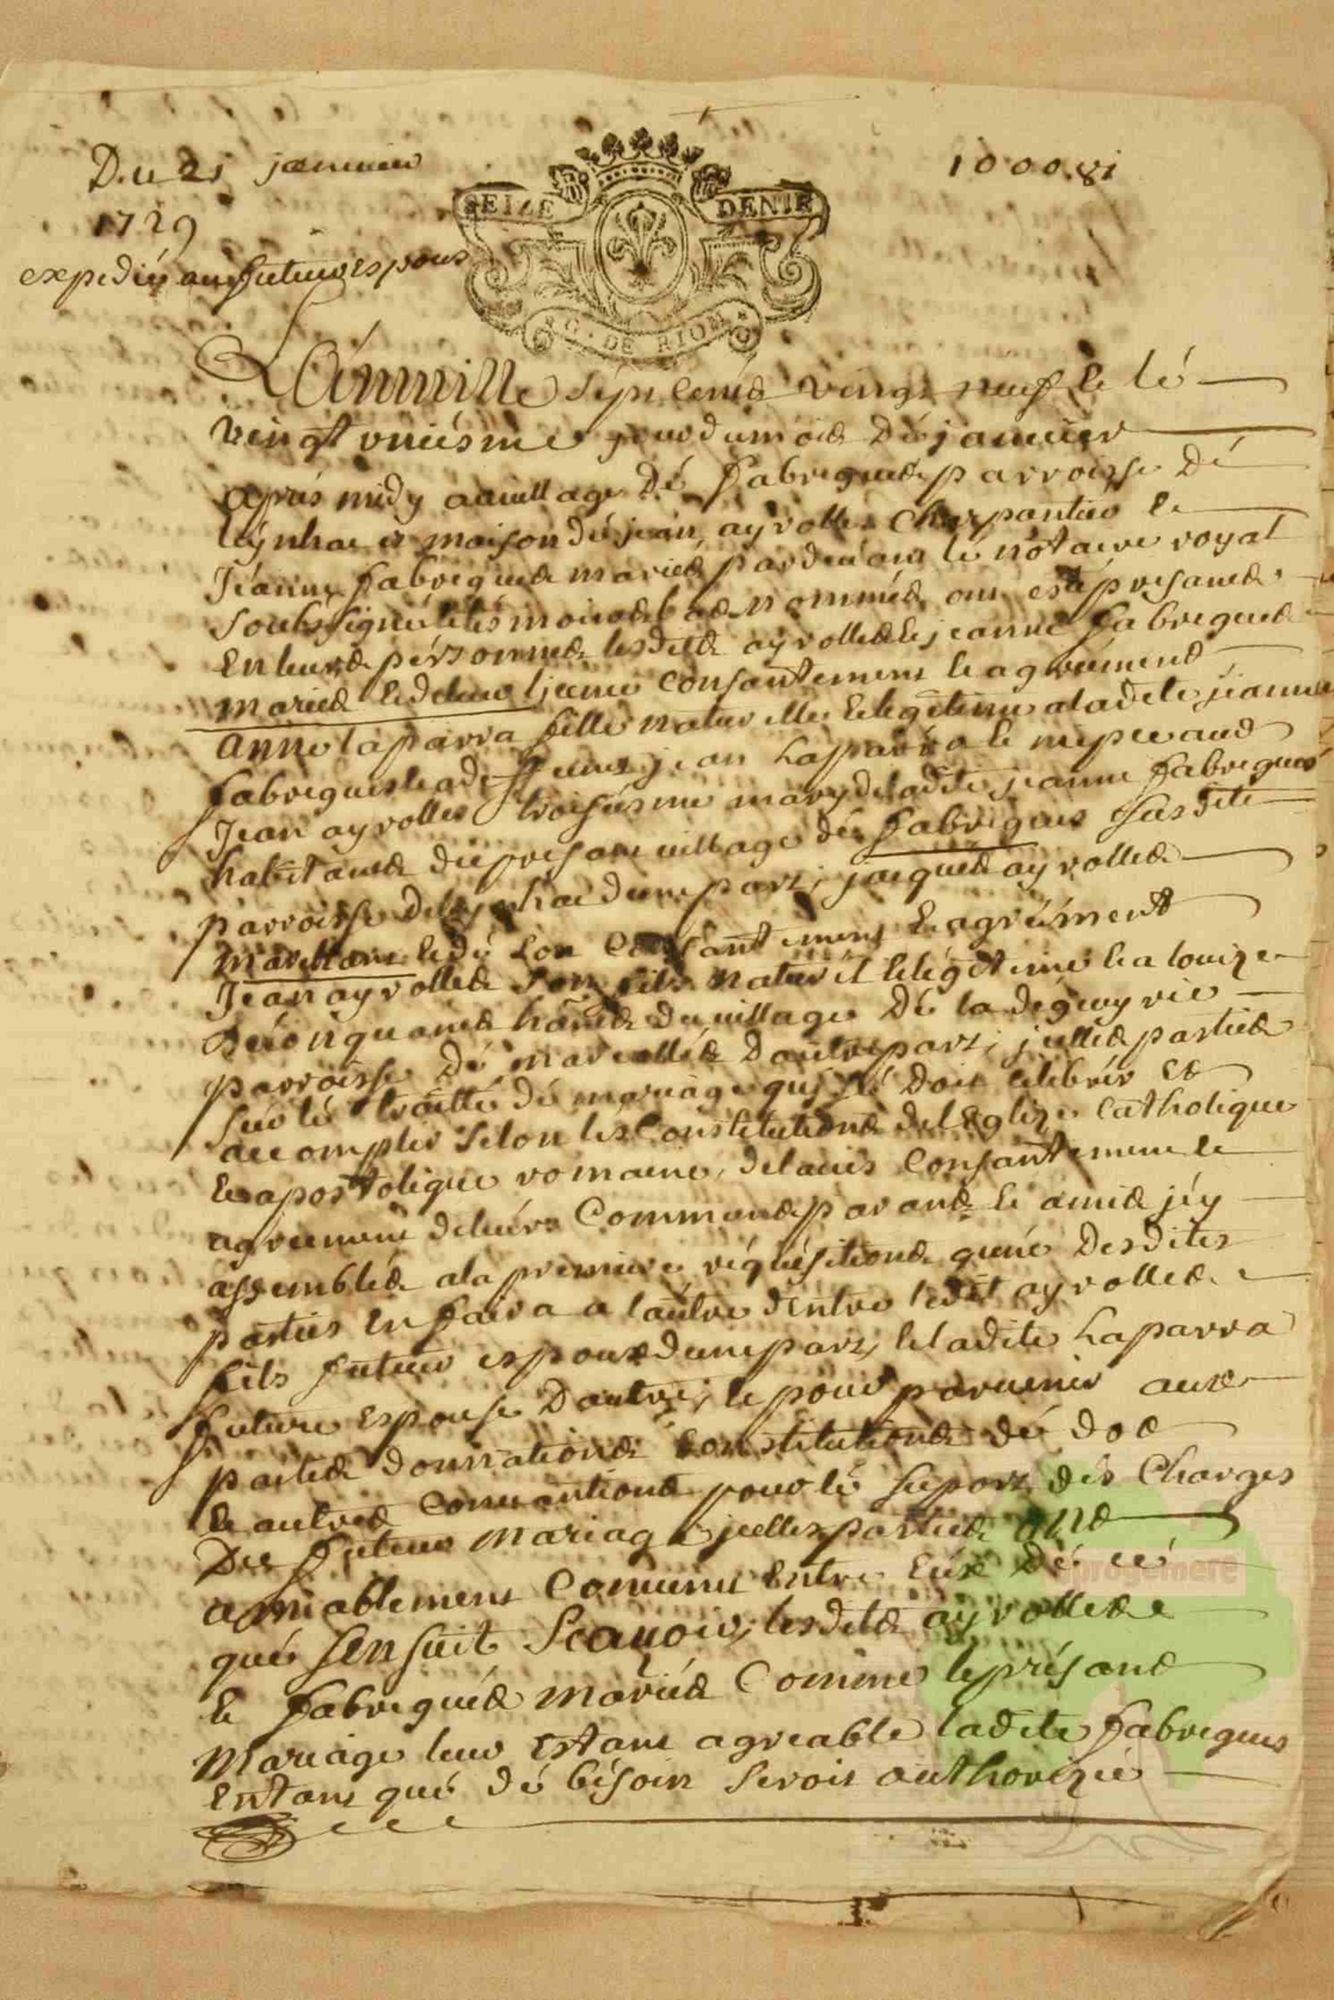 Du 21 januier
1729
expedié au futeur espous
1000.8i
SEIZE DENIE
G. DE RIOM
L'an mille sept cents vingt neuf et lé
vingt uniésme jour du mois dé januier
aprés midy au uillage dé fabregues parroisse dé
leynhac et maison dé jean ayrolles charpantier et
Jeanne fabregues mariés pardeuant lé notaire royal
soubssigné et tésmoins bas nommés ont esté présants
en leurs pérsonnes lesdits ayrolles et jeanne fabregues
mariés et de leur consantement et agrément
anne laparra fille naturelle et légitime a ladite jeanne
fabregues et a deffunt jean laparra
Jean ayrolles troisiésme mary de ladite jeanne fabregues
habitants du présant uillage dés fabregues susdite
parroisse de leynhac d'une part, jacques ayrolles
et dé son consantement et agrément
Jean ayrolles son fils naturél et légitime et a louize
du uillage dé la
parroisse dé marcollés d'autre part; jcelles parties
sur lé traitté dé mariage qui sé doit celebrér et
accomplir selon lés constitutions de l'eglize catholique
apostolique romaine, de l'auis consantement et
agrement de leurs communs parants et amis jéy
assemblés a la premiere réquisitions qu'uné desdites
parties en faira a l'autre d'entre ledit ayrolles
fils futeur espoux d'une part, et ladite Laparra
future espouse d'autre, et pour paruenir aux
pactes donnations constitutions dé dot
et autres conuantions pour lé suport dés charges
du futeur mariage jcelles parties ont
amiablement conuenu entre eux dé cé
qué s'en suit Scauoir, lesdits ayrolles
et fabregués mariés comme le présant
mariage leur estant agreable ladite fabregues
en tant qué dé bésoin seroit authorizée
progenere